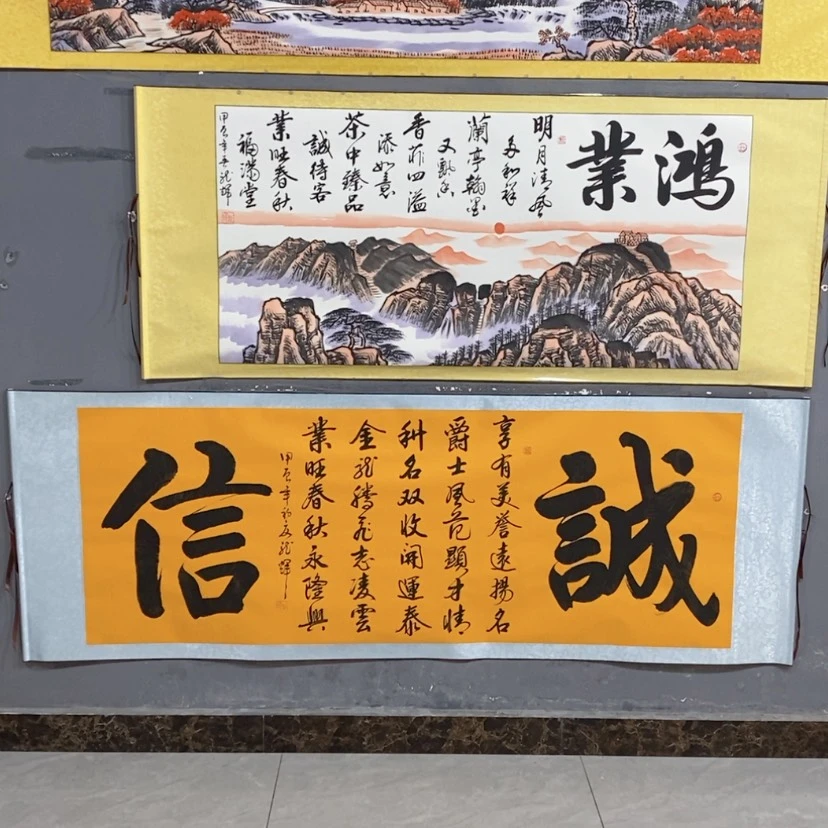 鴻業
明月清風
多和祥
蘭亭翰墨
又飄香
香菲四溢
添如意
茶中臻品
誠待客
業旺春秋
福滿堂
甲辰年夏龍輝
誠
享有美譽遠揚名
爵士風范顯才情
利名双收開運泰
金龍騰飛志凌雲
業旺春秋永隆興
甲辰年初夏龍輝
信